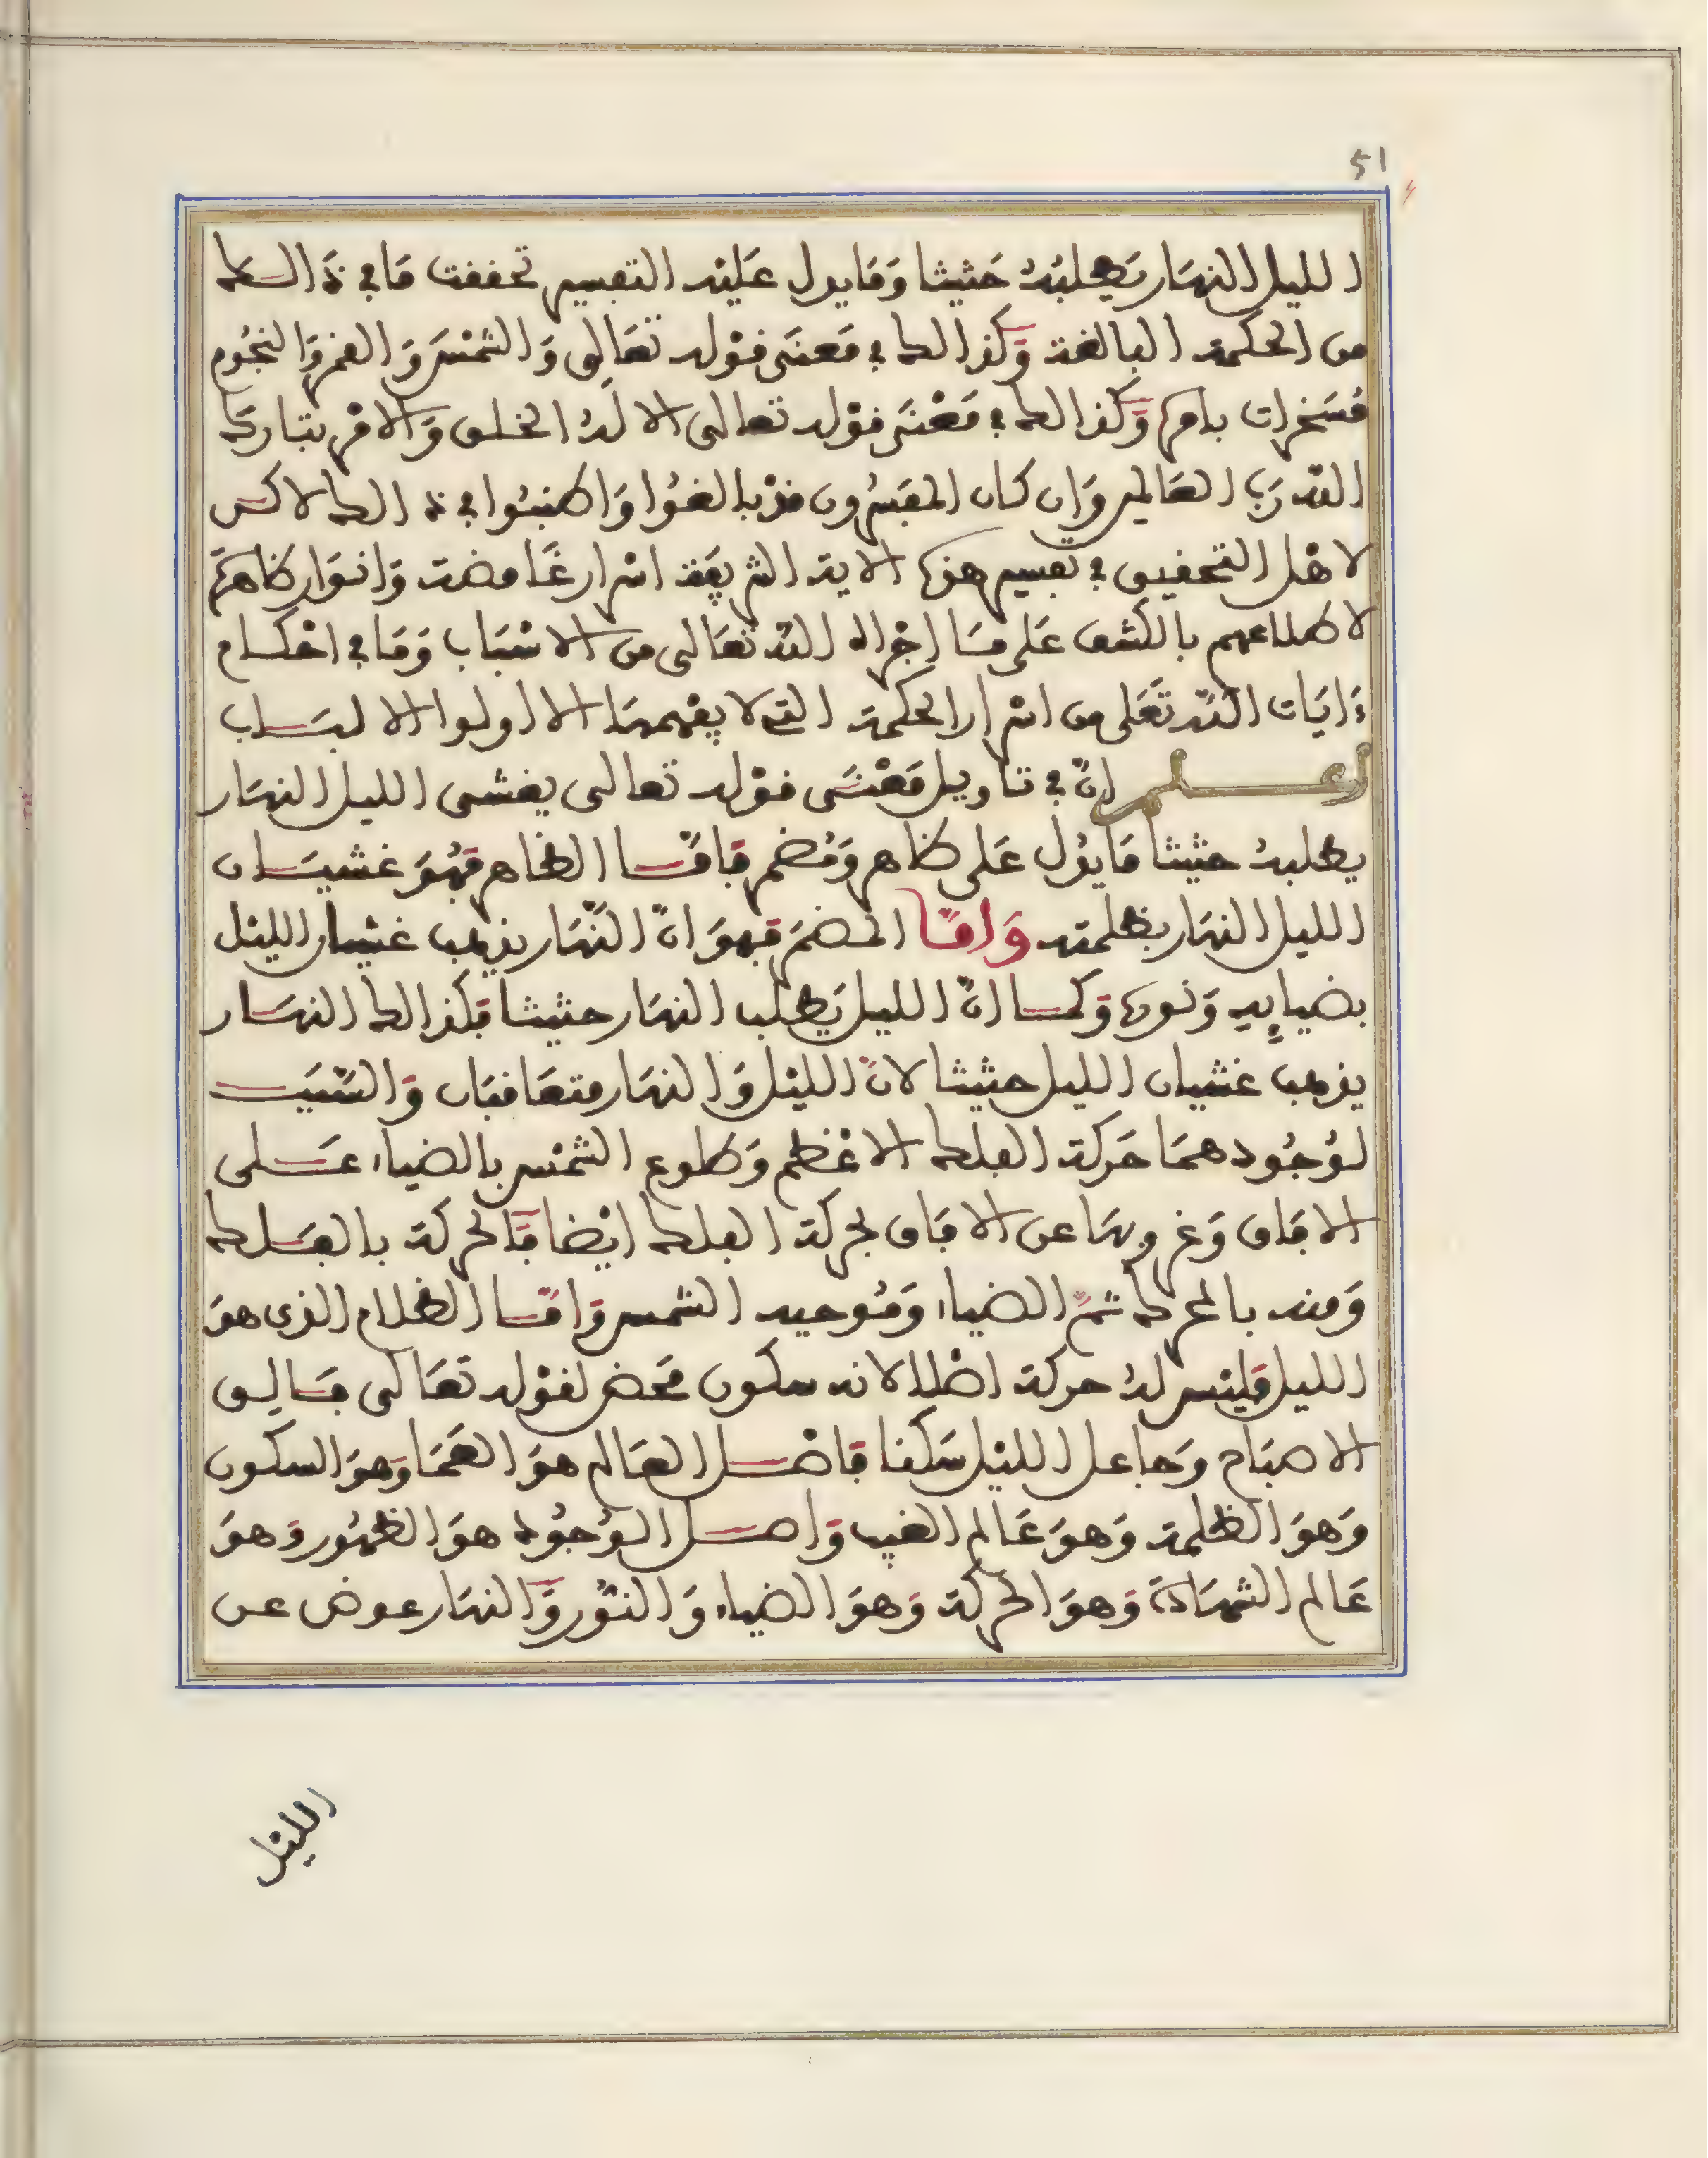 51
الليل النهار يطلبه حثيثا وما يول عليه التفسير تحققت ما في ذالك
من الحكمة البالغة وكذالك في معنى قوله تعالى والشمس والقمر والنجوم
مسخرات بامره وكذالك في معنى قوله تعالى الا له الخلق والامر تبارك
الله رب العالمين وان كان المفسرون قد بالغوا واطنبوا في ذالك لاكن
لاهل التحقيق في تفسير هذه الاية الشريفة اسرار غامضة وانوار ظاهرة
لاطلاعهم بالكشف على ما اجراه الله تعالى من الاسباب وما في احكام
ءايات الله تعلى من اسرار الحكمة التي لا يفهمها الا اولوا الالباب
اعلم ان في تاويل معنى قوله تعالى يغشى الليل النهار
يطلبه حثيثا ما يول على ظاهر ومضمر فاما الظاهر فهو غشيان
الليل النهار بظلمته واما المضمر فهو ان النهار يذهب غشيان الليل
بضيايه ونوره وكما ان الليل يطلب النهار حثيثا فكذالك النهار
يذهب غشيان الليل حثيثا لان الليل والنهار متعاقبان والسبب
لوجودهما حركة الفلك الاعظم وطلوع الشمس بالضياء على
الافاق وغروبها عن الافاق لحركة الفلك ايضا فالحركة بالفلك
ومنه بالمحرك ثم الضياء وموجبه الشمس واما الظلام الذي هو
الليل فليس له حركة اصلا لانه سكون محض لقوله تعالى فالق
الاصباح وجاعل الليل سكنا فاصل العالم هو العما وهو السكون
وهو الظلمة وهو عالم الغيب واصل الوجود هو الظهور وهو
عالم الشهادة وهو الحركة وهو الضياء والنور والنهار عوض عن
الليل